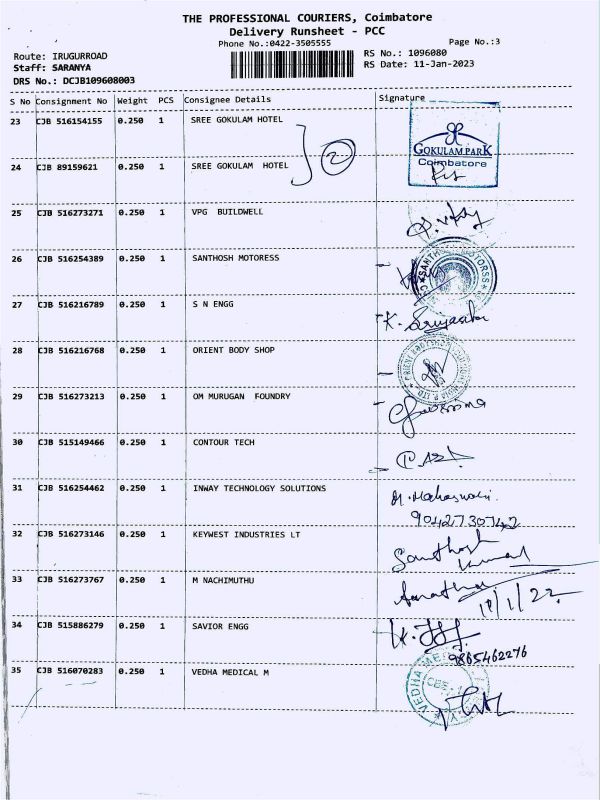 THE PROFESSIONAL COURIERS, Coimbatore
Delivery Runsheet - PCC
Phone No.:0422-3505555
Page No.:3
Route: IRUGURROAD
RS No.: 1096080
Staff: SARANYA
RS Date: 11-Jan-2023
DRS No.: DCJB109608003
S No Consignment No Weight PCS Consignee Details Signature
23 CJB 516154155 0.250 1 SREE GOKULAM HOTEL
2
GOKULAM PARK
Coimbatore
24 CJB 89159621 0.250 1 SREE GOKULAM HOTEL
25 CJB 516273271 0.250 1 VPG BUILDWELL
26 CJB 516254389 0.250 1 SANTHOSH MOTORESS
27 CJB 516216789 0.250 1 S N ENGG
28 CJB 516216768 0.250 1 ORIENT BODY SHOP
29 CJB 516273213 0.250 1 OM MURUGAN FOUNDRY
30 CJB 515149466 0.250 1 CONTOUR TECH
31 CJB 516254462 0.250 1 INWAY TECHNOLOGY SOLUTIONS
9042730742
32 CJB 516273146 0.250 1 KEYWEST INDUSTRIES LT
Santhosh
Kumar
33 CJB 516273767 0.250 1 M NACHIMUTHU
34 CJB 515886279 0.250 1 SAVIOR ENGG
9865462276
35 CJB 516070283 0.250 1 VEDHA MEDICAL M
VEDHA